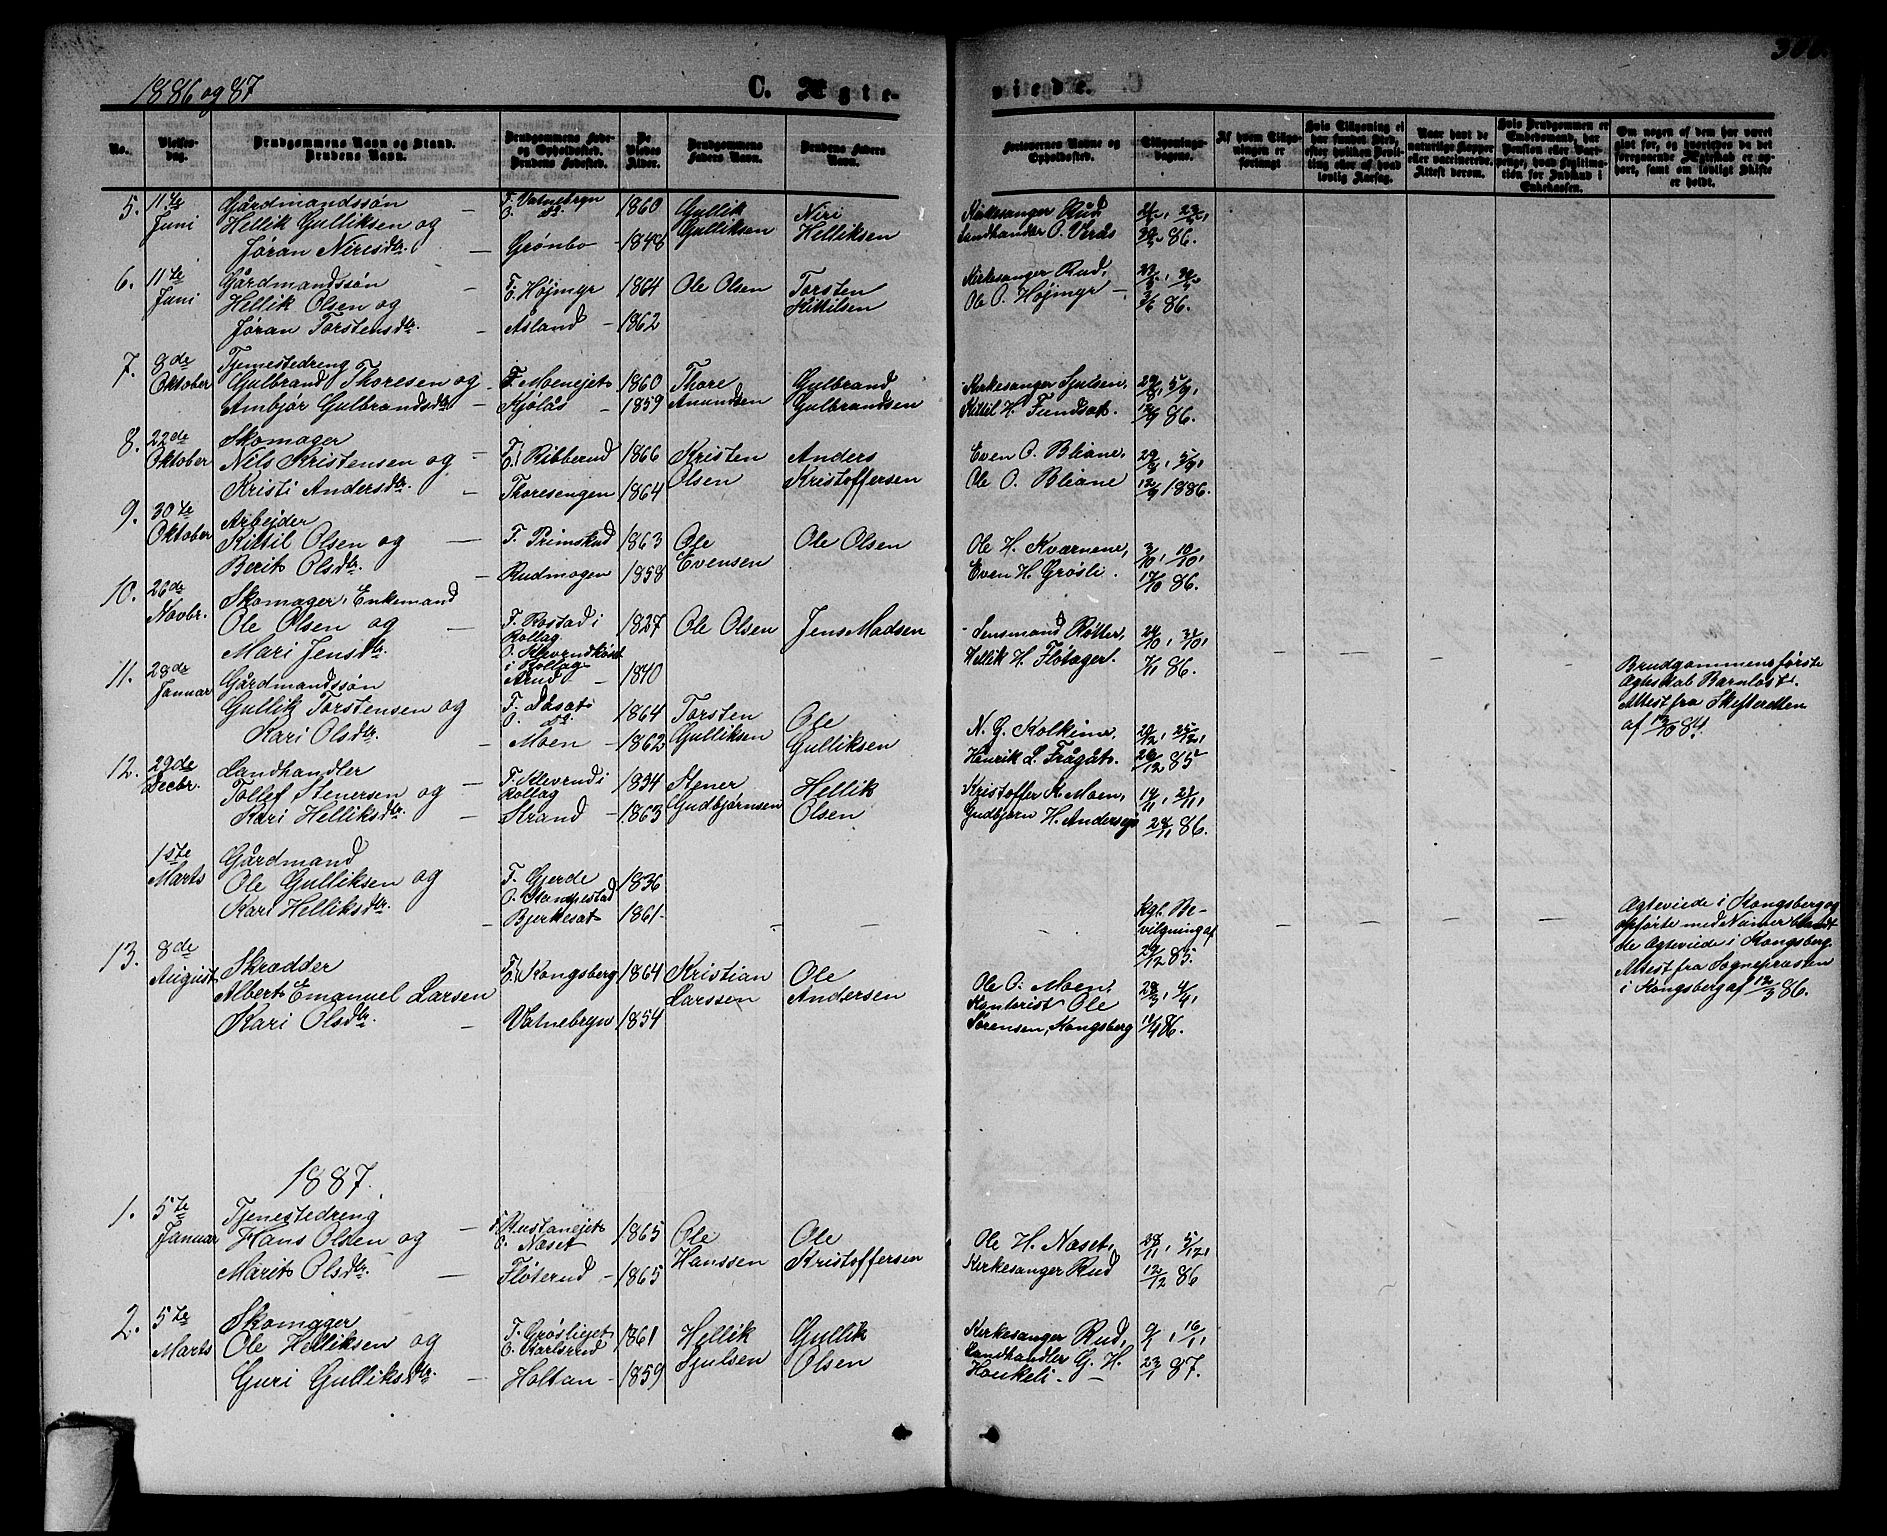 1886 og 87
C. Ægte-
No.
Vielses-
dag.
Brudgommens Navn og Stand.
Brudens Navn.
Brudgommens Føde-
og Opholdssted.
Brudens Fødested.
De
Viedes
Alder.
Brudgommens
Faders Navn.
Brudens Faders
Navn.
5. 11te
Juni
Gårdmandssøn
Hellik Gulliksen og
Jøran Nirisdtr.
F. Vatnebryn
O. do.
Grønbo
1860
1848
Gullik
Gulliksen
Niri
Helliksen
6. 11te
Juni
Gårdmandssøn
Hellik Olsen og
Jøran Torstensdtr.
F.
O. Højmyr
Åsland
1864
1862
Ole Olsen
Torsten
Kittilsen
7. 8de
Oktober
Tjenestedreng
Gulbrand Thoresen og
Ambjør Gulbrandsdtr.
F. Moenejet
Kjølås
1860
1859
Thore
Amundsen
Gulbrand
Gulbrandsen
8. 22de
Oktober
Skomager
Nils Kristensen og
Kristi Andersdtr.
F.
O. Ribberud
Thoresengen
1866
1864
Kristen
Olsen
Anders
Kristoffersen
9. 30te
Oktober
Arbejder
Kittil Olsen og
Berit Olsdtr.
F. Primskud
Rudmogen
1863
1858
Ole
Evensen
Ole Olsen
10. 26de
Novbr.
Skomager, Enkemand
Ole Olsen og
Mari Jensdtr.
F. Rostad i
Rollag
i Rollag
Arud
1827
1840
Ole Olsen
Jens Madsen
11. 28de
Januar
Gårdmandssøn
Gullik Torstensen og
Kari Olsdtr.
O. do.
Moen
1864
1862
Torsten
Gulliksen
Ole
Gulliksen
12. 29de
Decbr.
Landhandler
Tollef Stenersen og
Kari Helliksdtr.
F. Klevrud i
Rollag
Strand
1834
1863
Stener
Gudbjørnsen
Hellik
Olsen
1ste
Marts
Gårdmand
Ole Gulliksen og
Kari Helliksdtr.
F. Gjerde
O. Stenpestad
Bjerkesat
1836
1861
13. 8de
August
Skrædder
Albert Emanuel Larsen
Kari Olsdtr.
F.
O. Kongsberg
Vatnebryn
1864
1854
Kristian
Larssen
Ole
Andersen
1887.
1. 5te
Januar
Tjenestedreng
Hans Olsen og
Marit Olsdtr.
F. Rustanejet
O. Næset
Fløterud
1865
1865
Ole
Hanssen
Ole
Kristoffersen
2. 5te
Marts
Skomager
Ole Helliksen og
Guri Gulliksdtr.
F. Grøsliejet
O. Karlsrud
Holtan
1861
1859
Hellik
Sjulsen
Gullik
Olsen
viede.
Forlovernes Navne og
Opholdssted.
Tillysnings-
dagene.
Af hvem Tillys-
ningen er
forlangt
Hvis Tillysning ej
har fundet Sted,
efter hvilken Bevil-
ling eller af hvad
lovlig Aarsag.
Naar havt de
naturlige Kopper
eller vaccinerede.
Attest derom.
Hvis Brudgommen er
Embedsmand, har
Pension eller Vart-
penge, hvad Legitima-
tion for Indskud i
Enkekassen.
Om nogen af dem har været
gift før, og hvorledes da det
foregaaende Ægteskab er op-
hørt, samt om lovligt Skifte
er holdt.
Kirkesanger Rud
Landhandler O. Verås
30/5 86.
Kirkesanger Rud,
Ole O. Højmyr
3/6 86.
Kirkesanger Sjulsen,
Kittil H. Fundsat.
29/8, 5/9,
12/9 86.
Even O. Bliane,
Ole O. Bliane
29/8, 5/9,
12/9 1886.
Ole H. Kværnene,
Even H. Grøsli.
3/10, 10/10,
17/10 86.
Lensmand Røtter,
Hellik H. Fløtager.
24/10, 31/10,
7/11 86.
Brudgommens første
Ægteskab Barnløst.
Attest fra Skifteretten
af 13/10 84.
N. G. Kolkinn,
Henrik L. Frågåt.
26/12 85
Kristoffer K. Moen,
Gudbjørn H. Andersejo
14/11, 21/11,
28/11 86.
kgl. Be-
vilgning af
29/12 85.
Ægteviede i Kongsberg og
opførte med Numer blandt
de Ægteviede i Kongsberg.
Attest fra Sognepræsten
i Kongsberg af 12/3 86.
Ole O. Moen,
Kontorist Ole
Sørensen, Kongsberg
28/3, 4/4,
11/4 86.
Ole H. Næset,
Kirkesanger Rud
28/11, 5/12,
12/12 86
Kirkesanger Rud,
Landhandler G. H.
Houkeli.
9/1, 16/1,
23/1 87.